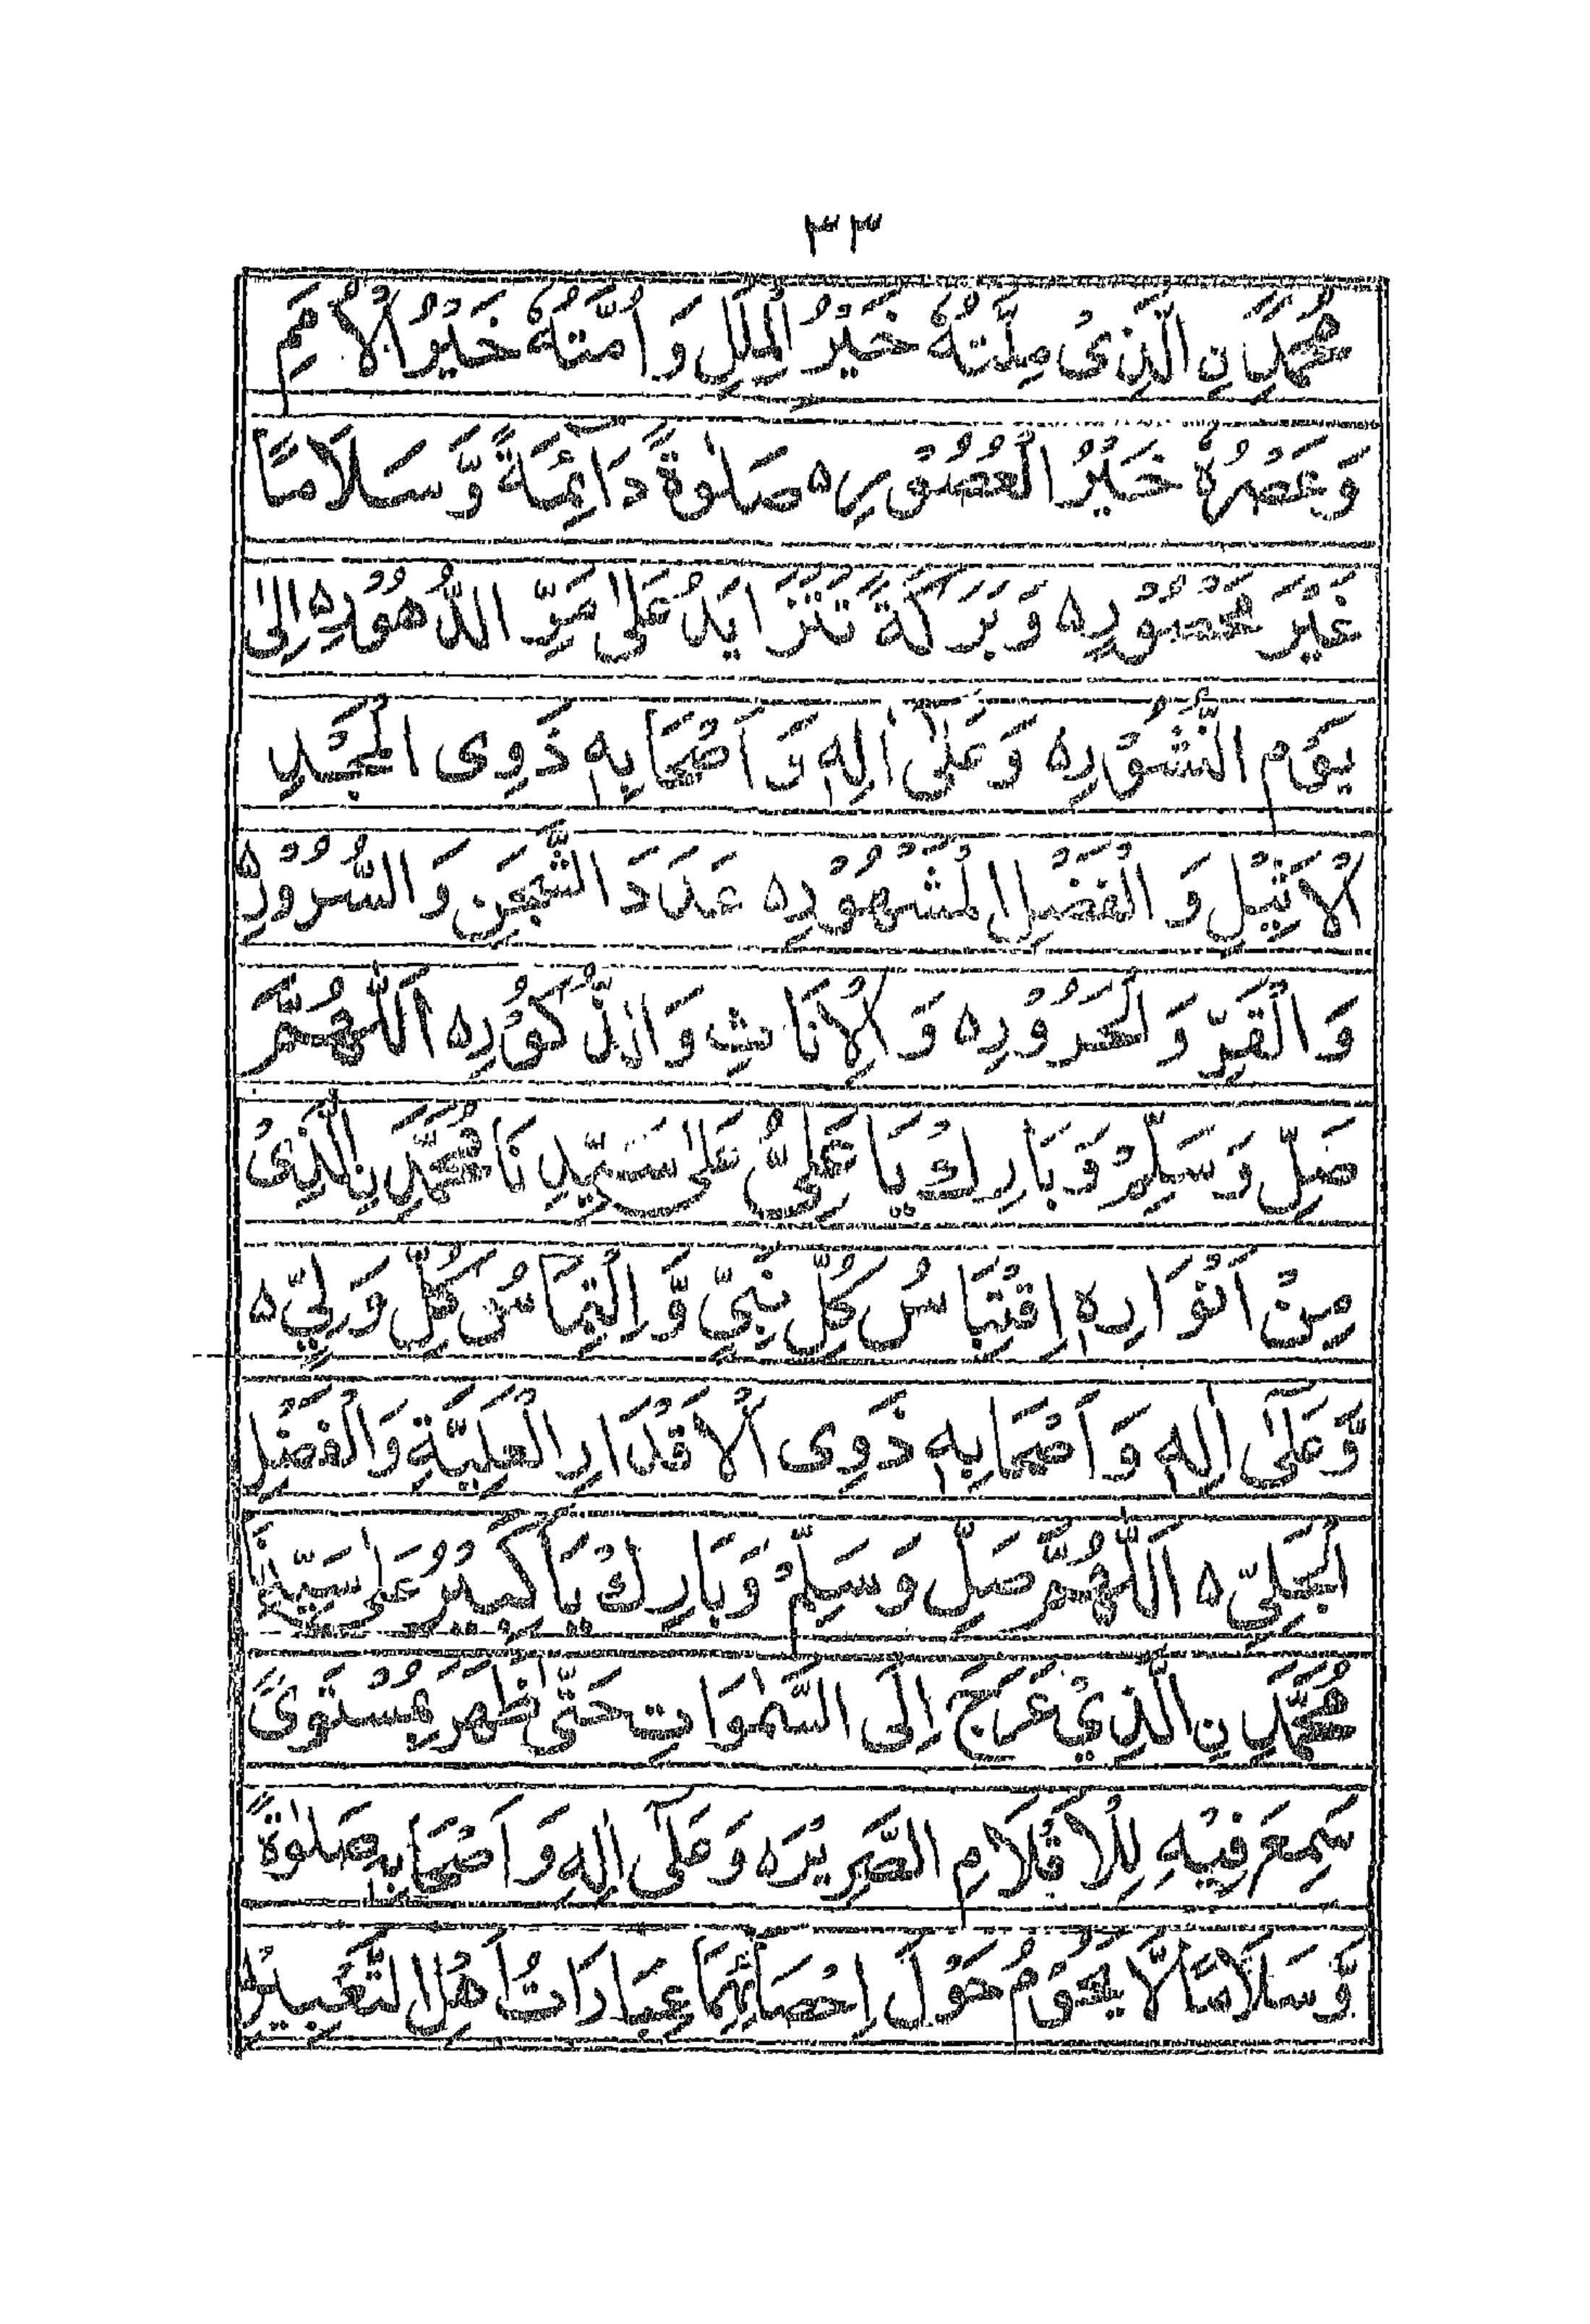 ٣٣
مُحَمَّدِ نِ الَّذِیْ مِلَّتُهٗ خَیْرُ الْمِلَلِ وَ اُمَّتُهٗ خَیْرُ الْاُمَمِ
وَعَصْرُهٗ خَیْرُ الْعُصُوْرِ ۵ صَلٰوةً دَآئِمَةً وَّ سَلَامًا
غَیْرَ مَحْصُوْرٍ ۵ وَ بَرَكَةً تَتَزَایَدُ عَلٰی مَرِّ الدُّهُوْرِ ۵ اِلٰی
یَوْمِ النُّشُوْرِ ۵ وَ عَلٰی اٰلِهٖ وَ اَصْحَابِهٖ ذَوِی الْمَجْدِ
الْاَثِیْلِ وَ الْفَضْلِ الْمَشْهُوْرِ ۵ عَدَدَ الشَّجَنِ وَ السُّرُوْرِ ۵
وَ الْقَرِّ وَ الْحَرُوْرِ ۵ وَ الْاِنَاثِ وَ الذُّكُوْرِ ۵ اَللّٰهُمَّ
صَلِّ وَ سَلِّمْ وَ بَارِكْ یَا عَلِیُّ عَلٰی سَیِّدِ نَا مُحَمَّدِ نِ الَّذِیْ
مِنْ اَنْوَارِهٖ اِقْتِبَاسُ كُلِّ نَبِیٍّ وَّ الْتِمَاسُ كُلِّ وَلِیٍّ ۵
وَّ عَلٰٓی اٰلِهٖ وَ اَصْحَابِهٖ ذَوِی الْاَقْدَارِ الْعَلِیَّةِ وَ الْفَضْلِ
الْجَلِیِّ ۵ اَللّٰهُمَّ صَلِّ وَ سَلِّمْ وَ بَارِكْ یَا كَبِیْرُ عَلٰی سَیِّدِنَا
مُحَمَّدِ نِ الَّذِیْ عَرَجَ اِلَی السَّمٰوَاتِ حَتّٰی ظَهَرَ بِمُسْتَوًی
سَمِعَ فِیْهِ لِلْاَقْلَامِ الصَّرِیْرَ ۵ وَ عَلٰٓی اٰلِهٖ وَ اَصْحَابِهٖ صَلٰوةً
وَّ سَلَامًا لَّا یَحُوْمُ حَوْلَ اِحْصَائِهِمَا عِبَارَاتُ اَهْلِ التَّعْبِیْرِ